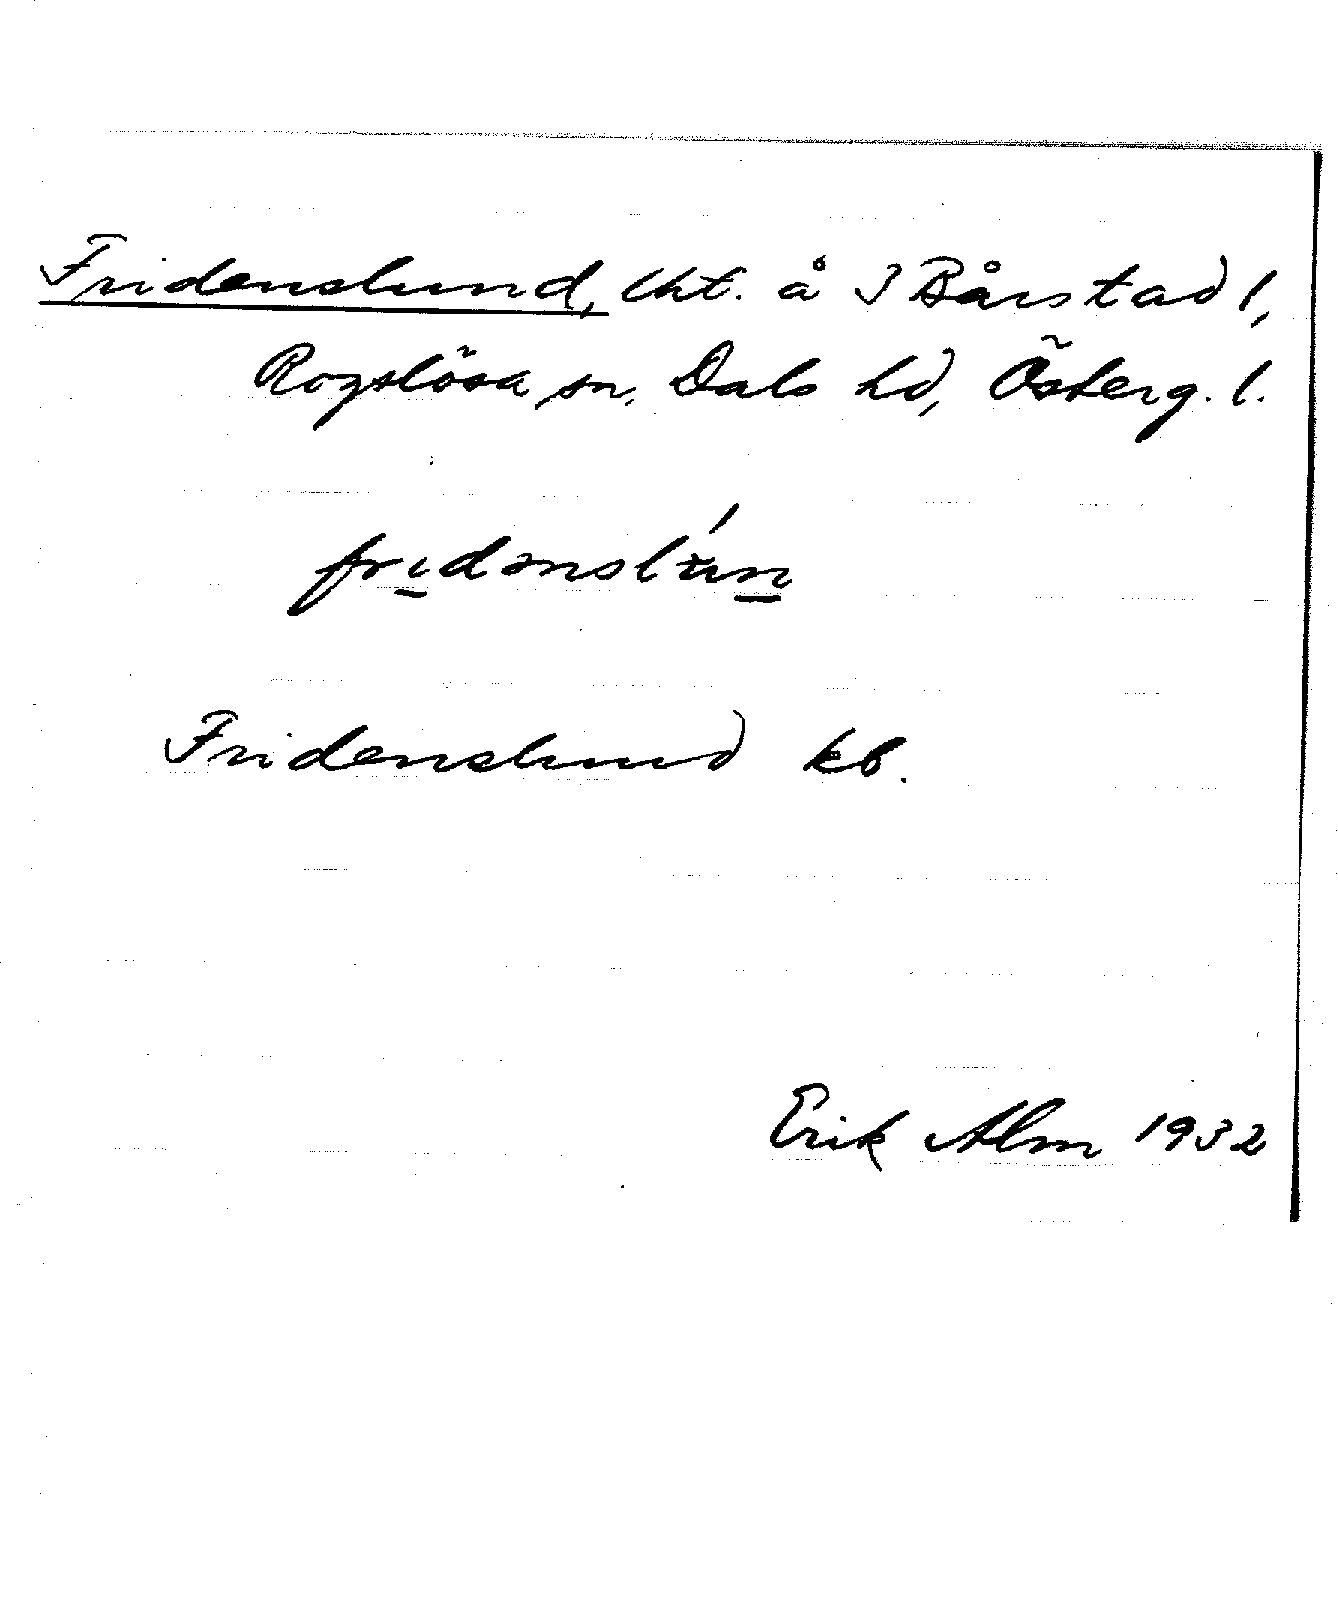 Fridenslund, lht. å 3 Bårstad l,
Rogslösa sn, Dals hd, Österg. l.
fridənslún
Fridenslund kb.
Erik Alm 1932